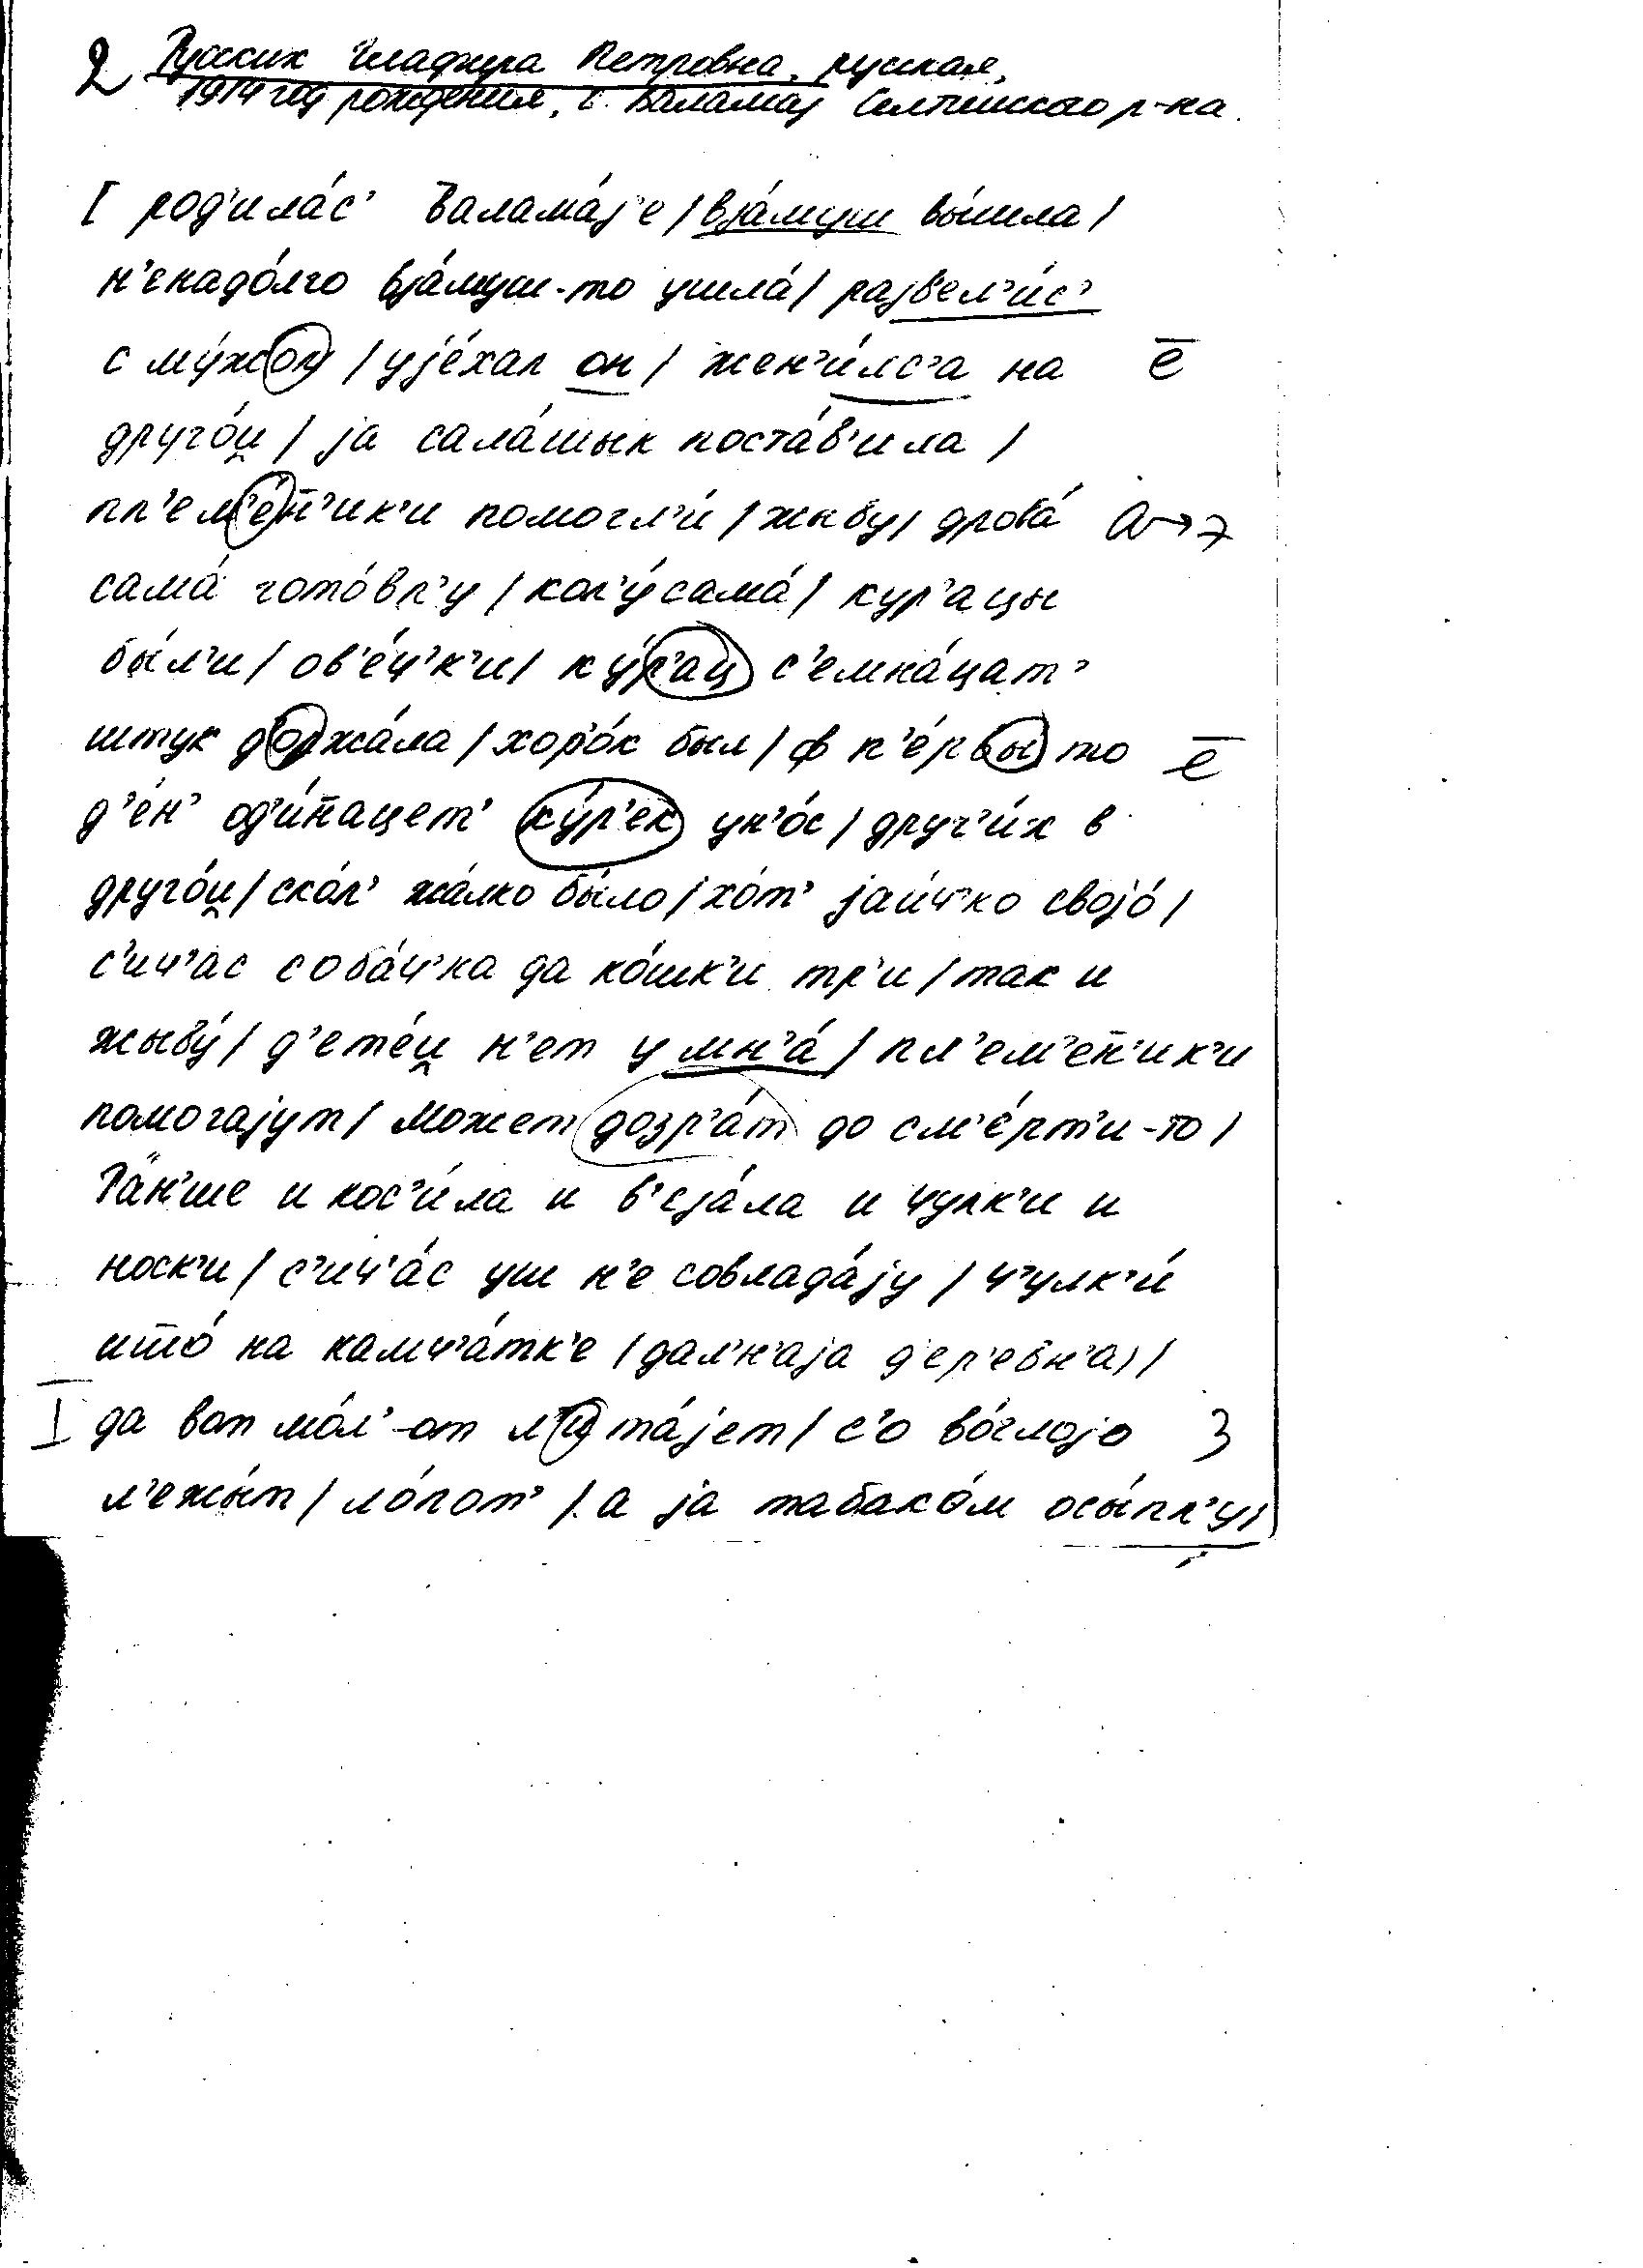 2 Русских Глафира Петровна, русская,
1914 год рождения, с. Валамаз Селтинского р-на.
[ род'ила́с' Валама́јэ / вја́муш вы́шла /
н'енадо́лго вја́муш-то ушла́ / разв'ел'и́с'
с му́жом / ује́хал он / жен'и́лс'а на ē
друго́й / ја сала́шык поста́в'ила /
пл'ем'е́н̄'ик'и помогл'и́ / жыву / дрова́ а→э
сама́ гото́вл'у / кол'у́ сама́ / кур'ацы
бы́л'и / ов'е́ч'к'и / ку́р'ац с'емна́цат'
штук доржа́ла / хор'о́к был / ф п'е́рвы то ē
д'ен' од'и́н̄ацет' ку́р'ек ун'о́с / друг'и́х в
друго́й / ско́л' жа́лко бы́ло / хот' јаи́ч'ко својо́ /
с'ич'а́с соба́ч'ка да ко́шк'и тр'и / так и
жыву́ / д'ете́й н'ет у мн'а́ / пл'ем'ен̄'ик'и
помогајут / может дозр'а́т до см'е́рт'и-то /
Ра́н'ше и кос'и́ла и в'еја́ла и чулк'и и
носк'и / с'ич'а́с уш н'е совлада́ју / ч'улк'и́
што́ на камч'а́тк'е (дал'н'аја д'ер'евн'а) /
I да вот мо́л'-от л'ита́јет / с'о во́глојо 3
л'ежы́т / ло́пот' / а ја табако́м осы́пл'у /